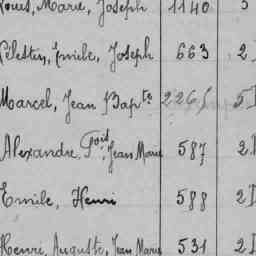 Louis, Marie, Joseph 1140
Célestin, Emile, Joseph 663 2
Marcel, Jean Bapte 226 5
Alexandre, Fois, Jean Marie 587 2
Emile, Henri 588 2
Henri, Auguste, Jean Marie 531 2